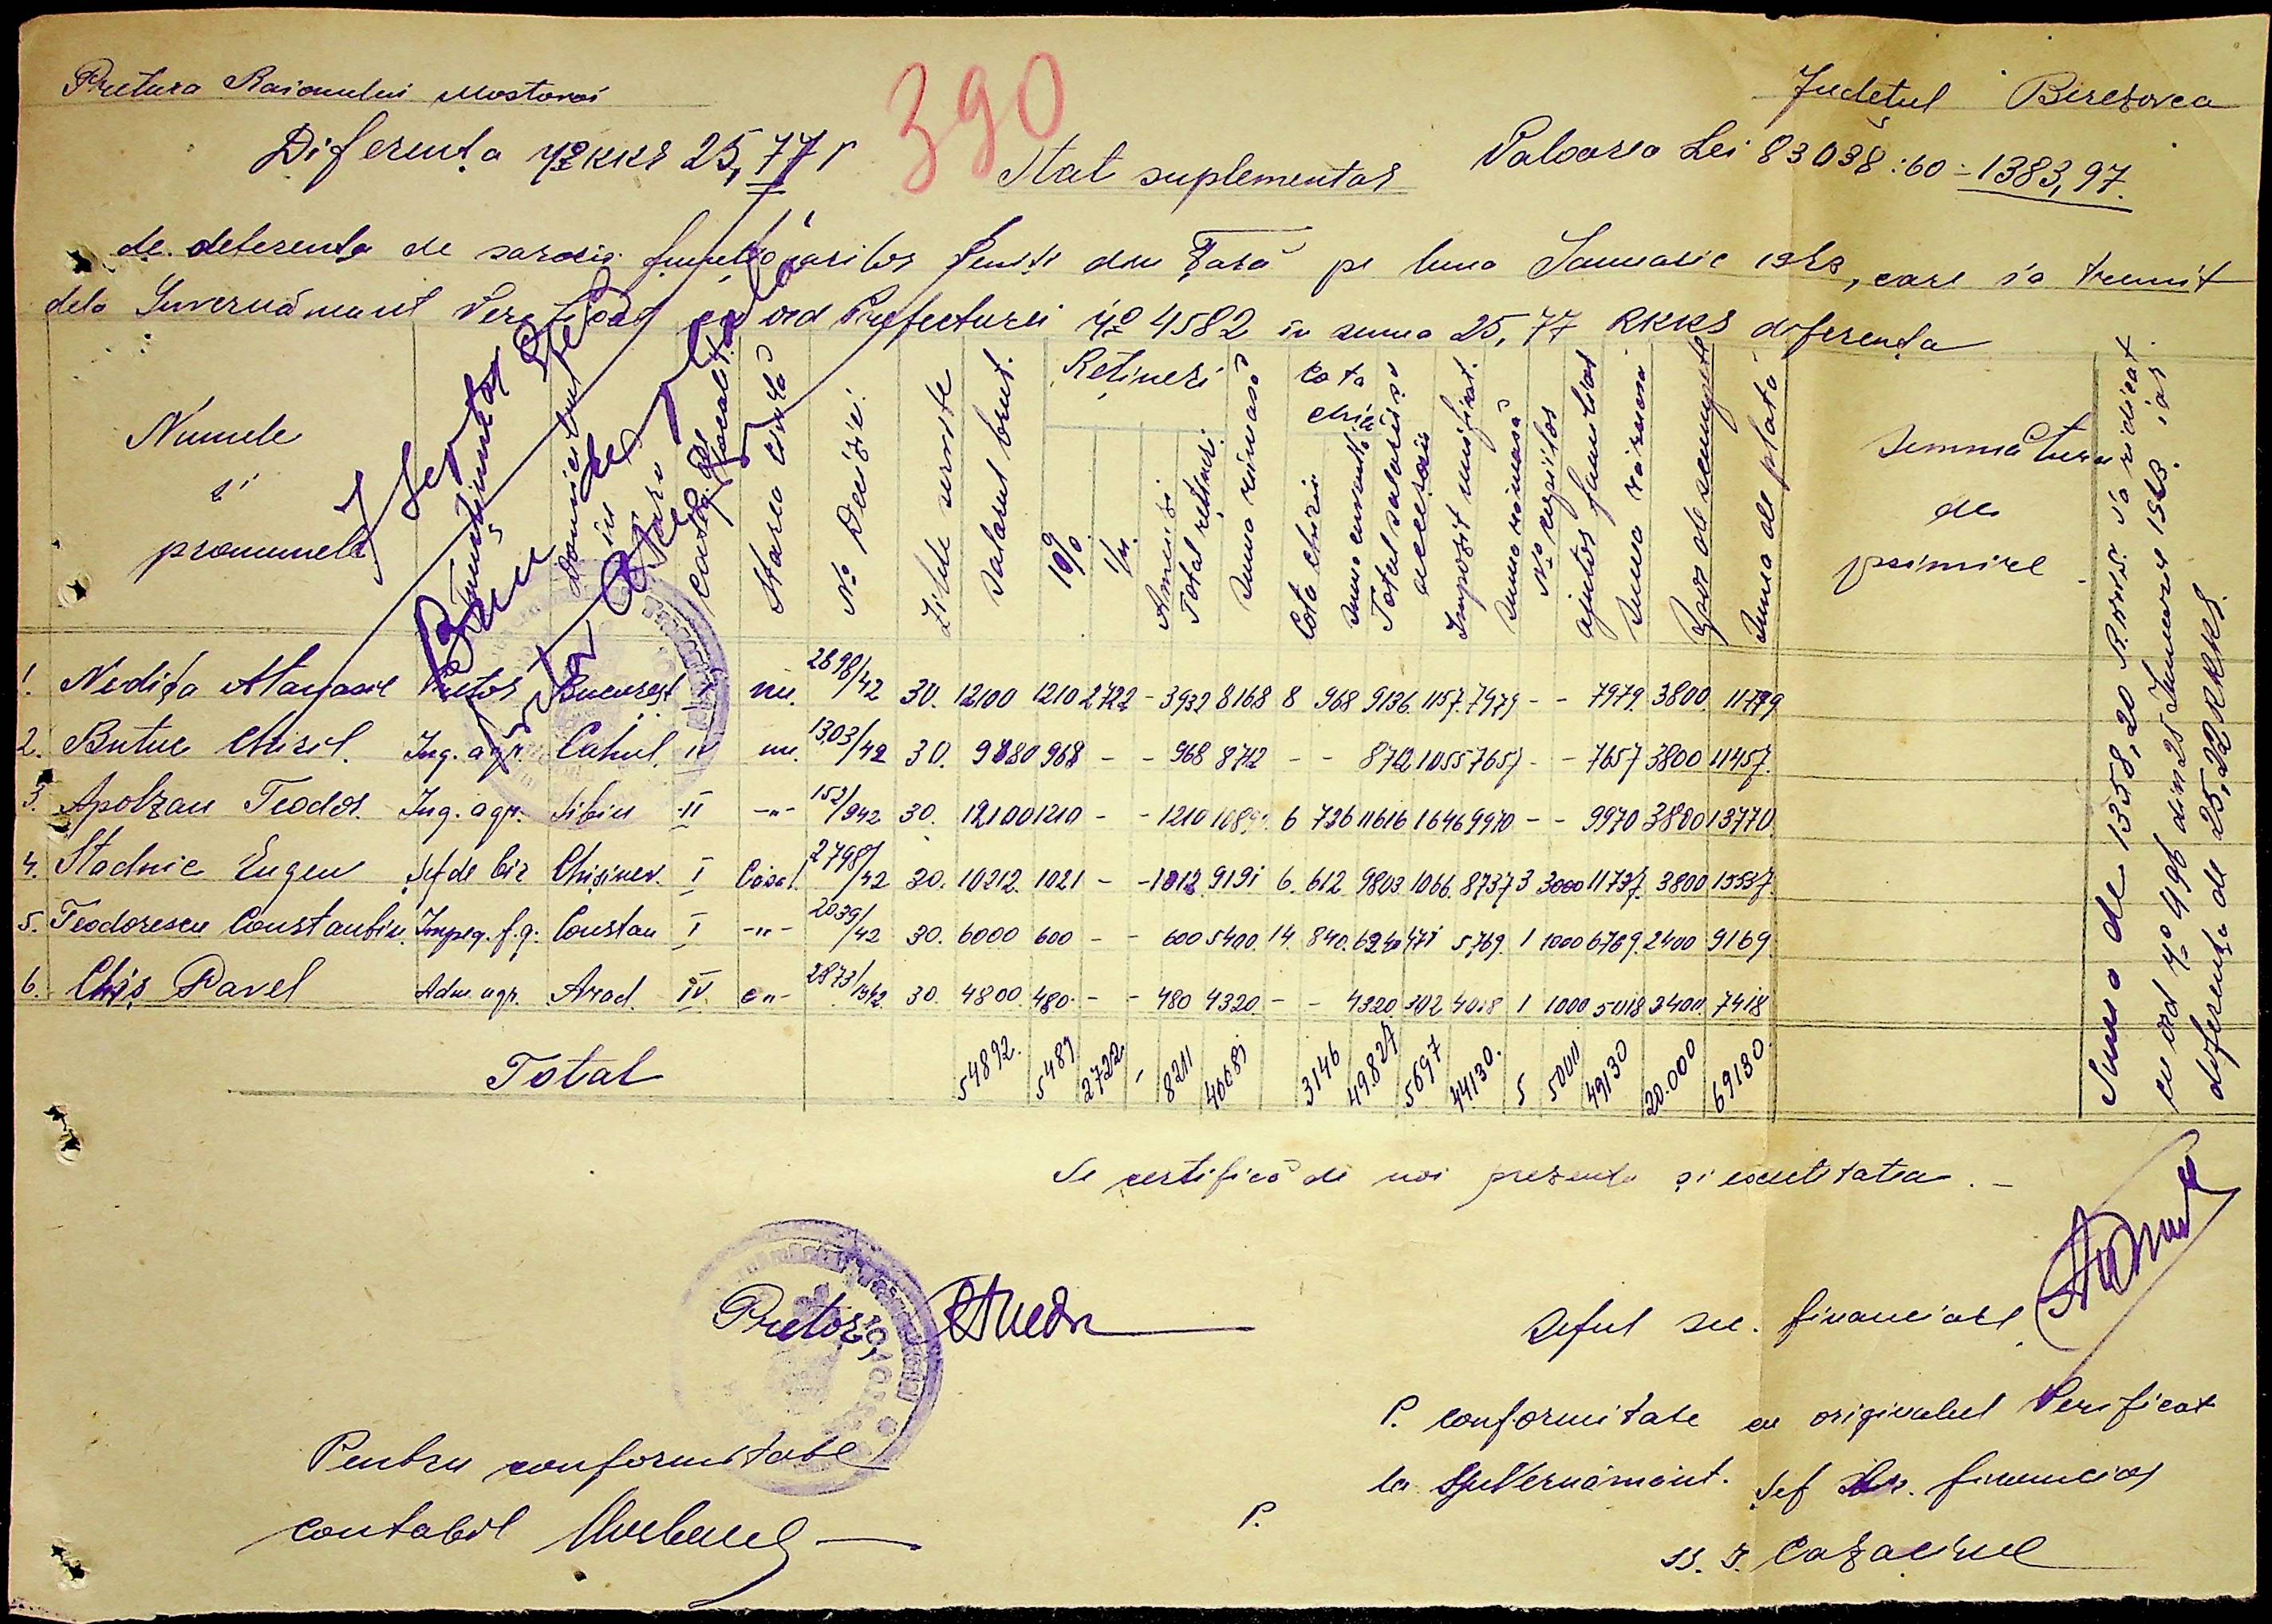 Pretura Raionului Mostovoi
Judeţul Berezovca
390
Diferenţa № RKKS 25,77
Stat suplementar
Valoarea Lei 83038:60=1383,97.
de deferenta de salariu funcţionarilor veniţi din Ţară pe luna Ianuarie 1943, care s'a trimit
dela Guvernământ cu ord Prefecturii № 4582 in suma 25,77 RKKS diferenţa
Numele
si
pronumele
Domiciliul
in
Starea civila
№ Deciziei.
Zilele servite
Salarul brut.
Reţineri
10%
1/n.
Total reţineri.
Suma rămasă
Cota chirii
Cota chirii
Suma cuvenită
Total salariu si
accesorii
Impozit unificat.
Suma ramasă
№ copiilor
ajutor familiar
Suma ramasa
Spor de scumpete
Suma de plată
Semnătura
de
primire
1. Nediţa Atanasie Pretor Bucureşt I nec. 2898/42 30. 12100 1210 2722 - 3932 8168 8 968 9136. 1157. 7979 - - 7979. 3800. 11779
2. Butuc Chiril. Ing. agr. Cahul. IV nec. 1303/42 30. 9680 968 - - 968 8712 - - 8712 1055 7657 - - 7657 3800 11457.
3. Apolzan Teodor. Ing. agr. Sibiu II -"- 152/942 30. 12100 1210 - - 1210 10890 6 726 11616 1646 9970 - - 9970 3800 13770
4. Stadnic Eugen Şef de bir Chişinev. I Căsăt. 2798/42 30. 10212. 1021 - - 1012. 9191 6. 612. 9803. 1066. 8737 3 3000 11737. 3800 15537.
5. Teodorescu Constantin. Impeg. f.g. Constan I -"- 2039/42 30. 6000 600 - - 600 5400. 14. 840. 6240 471 5769. 1 1000 6769. 2400 9169.
6. Chiş Pavel Adm agr. Arad. IV. -"- 2873/1942 30. 4800. 480. - - 480 4320. - - 4320. 302 4018 1 1000 5018 2400 7418
Total 54892. 5489. 2722. - 8211 46681 3146 49.827 5697 44130. 5 5000 49130 20.000 69130
Suma de 1358,20 R s'a ridicat
cu ord № 496 din 25 Ianuarie 1943. iar
diferenţa de 25,77 RKKS.
Se certifică de noi prezenta şi exactitatea.-
Pretor,
Şeful sec. financiare
P. conformitate cu originalul Verificat
la Guvernământ. Şef Ser. financiar
Pentru conformitate
contabil
P.
ss. I. Cazacinel